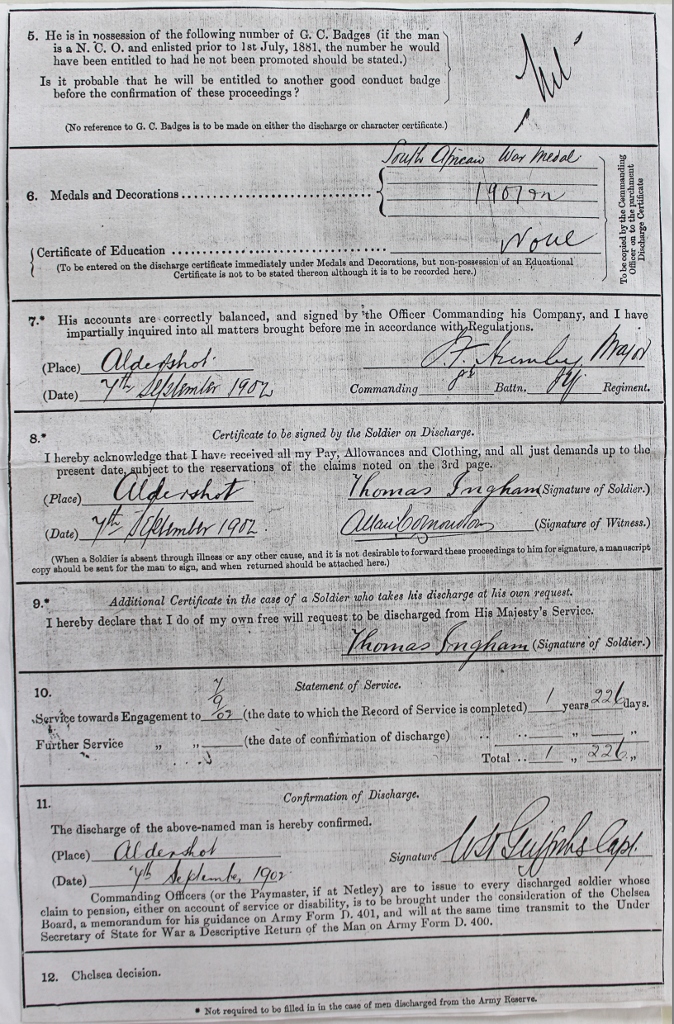 5. He is in possession of the following number of G. C. Badges (if the man
is a N. C. O. and enlisted prior to 1st July, 1881, the number he would
have been entitled to had he not been promoted should be stated.)
Is it probable that he will be entitled to another good conduct badge
before the confirmation of these proceedings?
Nil
(No reference to G. C. Badges is to be made on either the discharge or character certificate.)
South African War Medal
6. Medals and Decorations
1901
Certificate of Education
None
(To be entered on the discharge certificate immediately under Medals and Decorations, but non-possession of an Educational
Certificate is not to be stated thereon although it is to be recorded here.)
To be copied by the Commanding
Officer on to the parchment
Discharge Certificate
7.* His accounts are correctly balanced, and signed by the Officer Commanding his Company, and I have
impartially inquired into all matters brought before me in accordance with Regulations.
(Place) Aldershot Major
(Date) 7th September 1902 Commanding Battn. Regiment.
8.* Certificate to be signed by the Soldier on Discharge.
I hereby acknowledge that I have received all my Pay, Allowances and Clothing, and all just demands up to the
present date, subject to the reservations of the claims noted on the 3rd page.
(Place) Aldershot Thomas Ingham (Signature of Soldier.)
(Date) 7th September 1902 (Signature of Witness.)
(When a Soldier is absent through illness or any other cause, and it is not desirable to forward these proceedings to him for signature, a manuscript
copy should be sent for the man to sign, and when returned should be attached here.)
9.* Additional Certificate in the case of a Soldier who takes his discharge at his own request.
I hereby declare that I do of my own free will request to be discharged from His Majesty's Service.
Thomas Ingham (Signature of Soldier.)
10. Statement of Service.
Service towards Engagement to 7/9/02 (the date to which the Record of Service is completed) 1 years 226 days.
Further Service „ „ (the date of confirmation of discharge) .. „ „
Total .. 1 „ 226 „
11. Confirmation of Discharge.
The discharge of the above-named man is hereby confirmed.
(Place) Aldershot Signature Griffiths Capt.
(Date) 7th September 1902
Commanding Officers (or the Paymaster, if at Netley) are to issue to every discharged soldier whose
claim to pension, either on account of service or disability, is to be brought under the consideration of the Chelsea
Board, a memorandum for his guidance on Army Form D. 401, and will at the same time transmit to the Under
Secretary of State for War a Descriptive Return of the Man on Army Form D. 400.
12. Chelsea decision.
* Not required to be filled in in the case of men discharged from the Army Reserve.